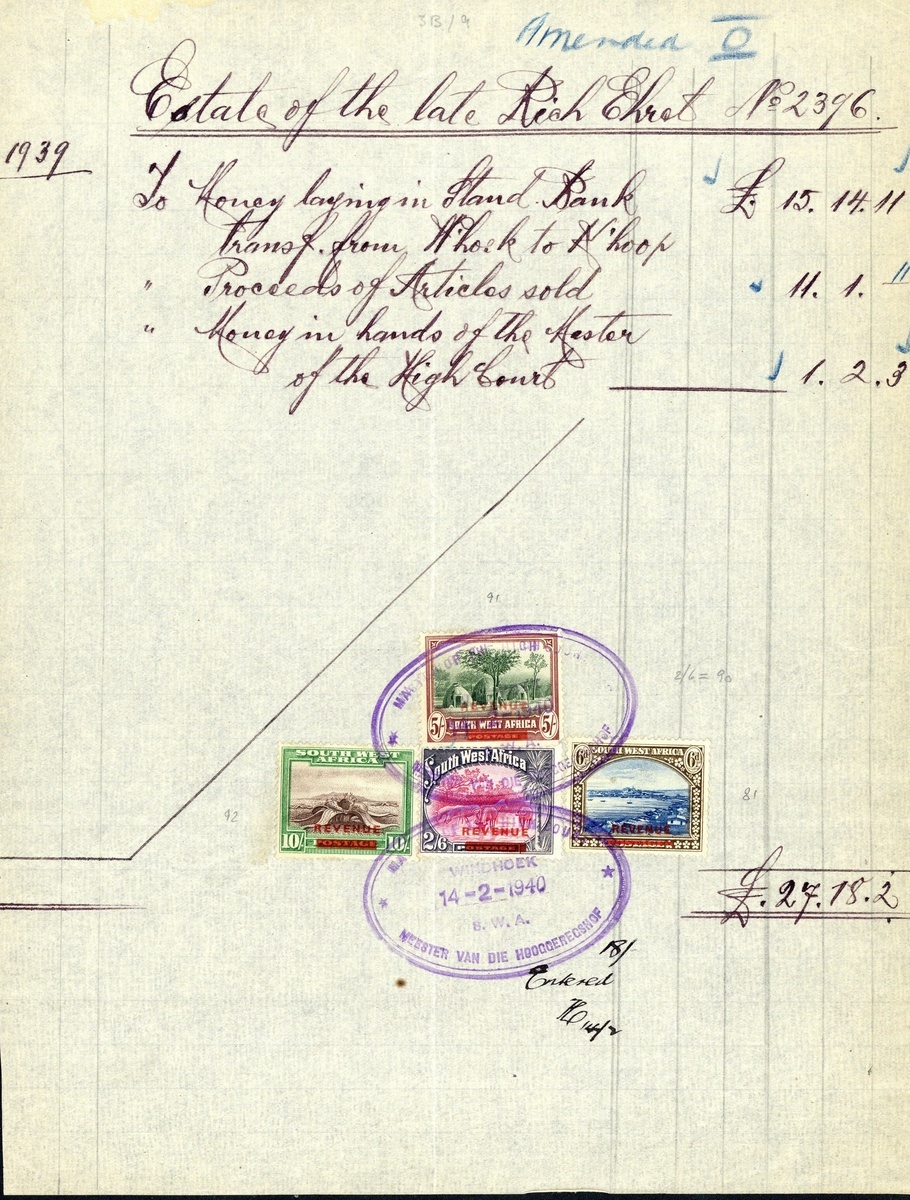 3B/9
Amended O
Estate of the late Rich Ehret No 2396.
1939
To Money laying in Stand. Bank £. 15. 14. 11
transf. from W'hoek to K'hoop
" Proceeds of Articles sold 11. 1. 11
" Money in hands of the Mester
of the High Court 1. 2. 3
91
5/- SOUTH WEST AFRICA 5/-
REVENUE
POSTAGE
1940
S.W.A.
2/6 = 90
SOUTH WEST AFRICA
10/- 10/-
REVENUE
POSTAGE
92
South West Africa
2/6
REVENUE
POSTAGE
6d SOUTH WEST AFRICA 6d
REVENUE
81
WINDHOEK
14-2-1940
S.W.A.
MEESTER VAN DIE HOOGGEREGSHOF
£. 27. 18. 2
18/-
Entered
14/2